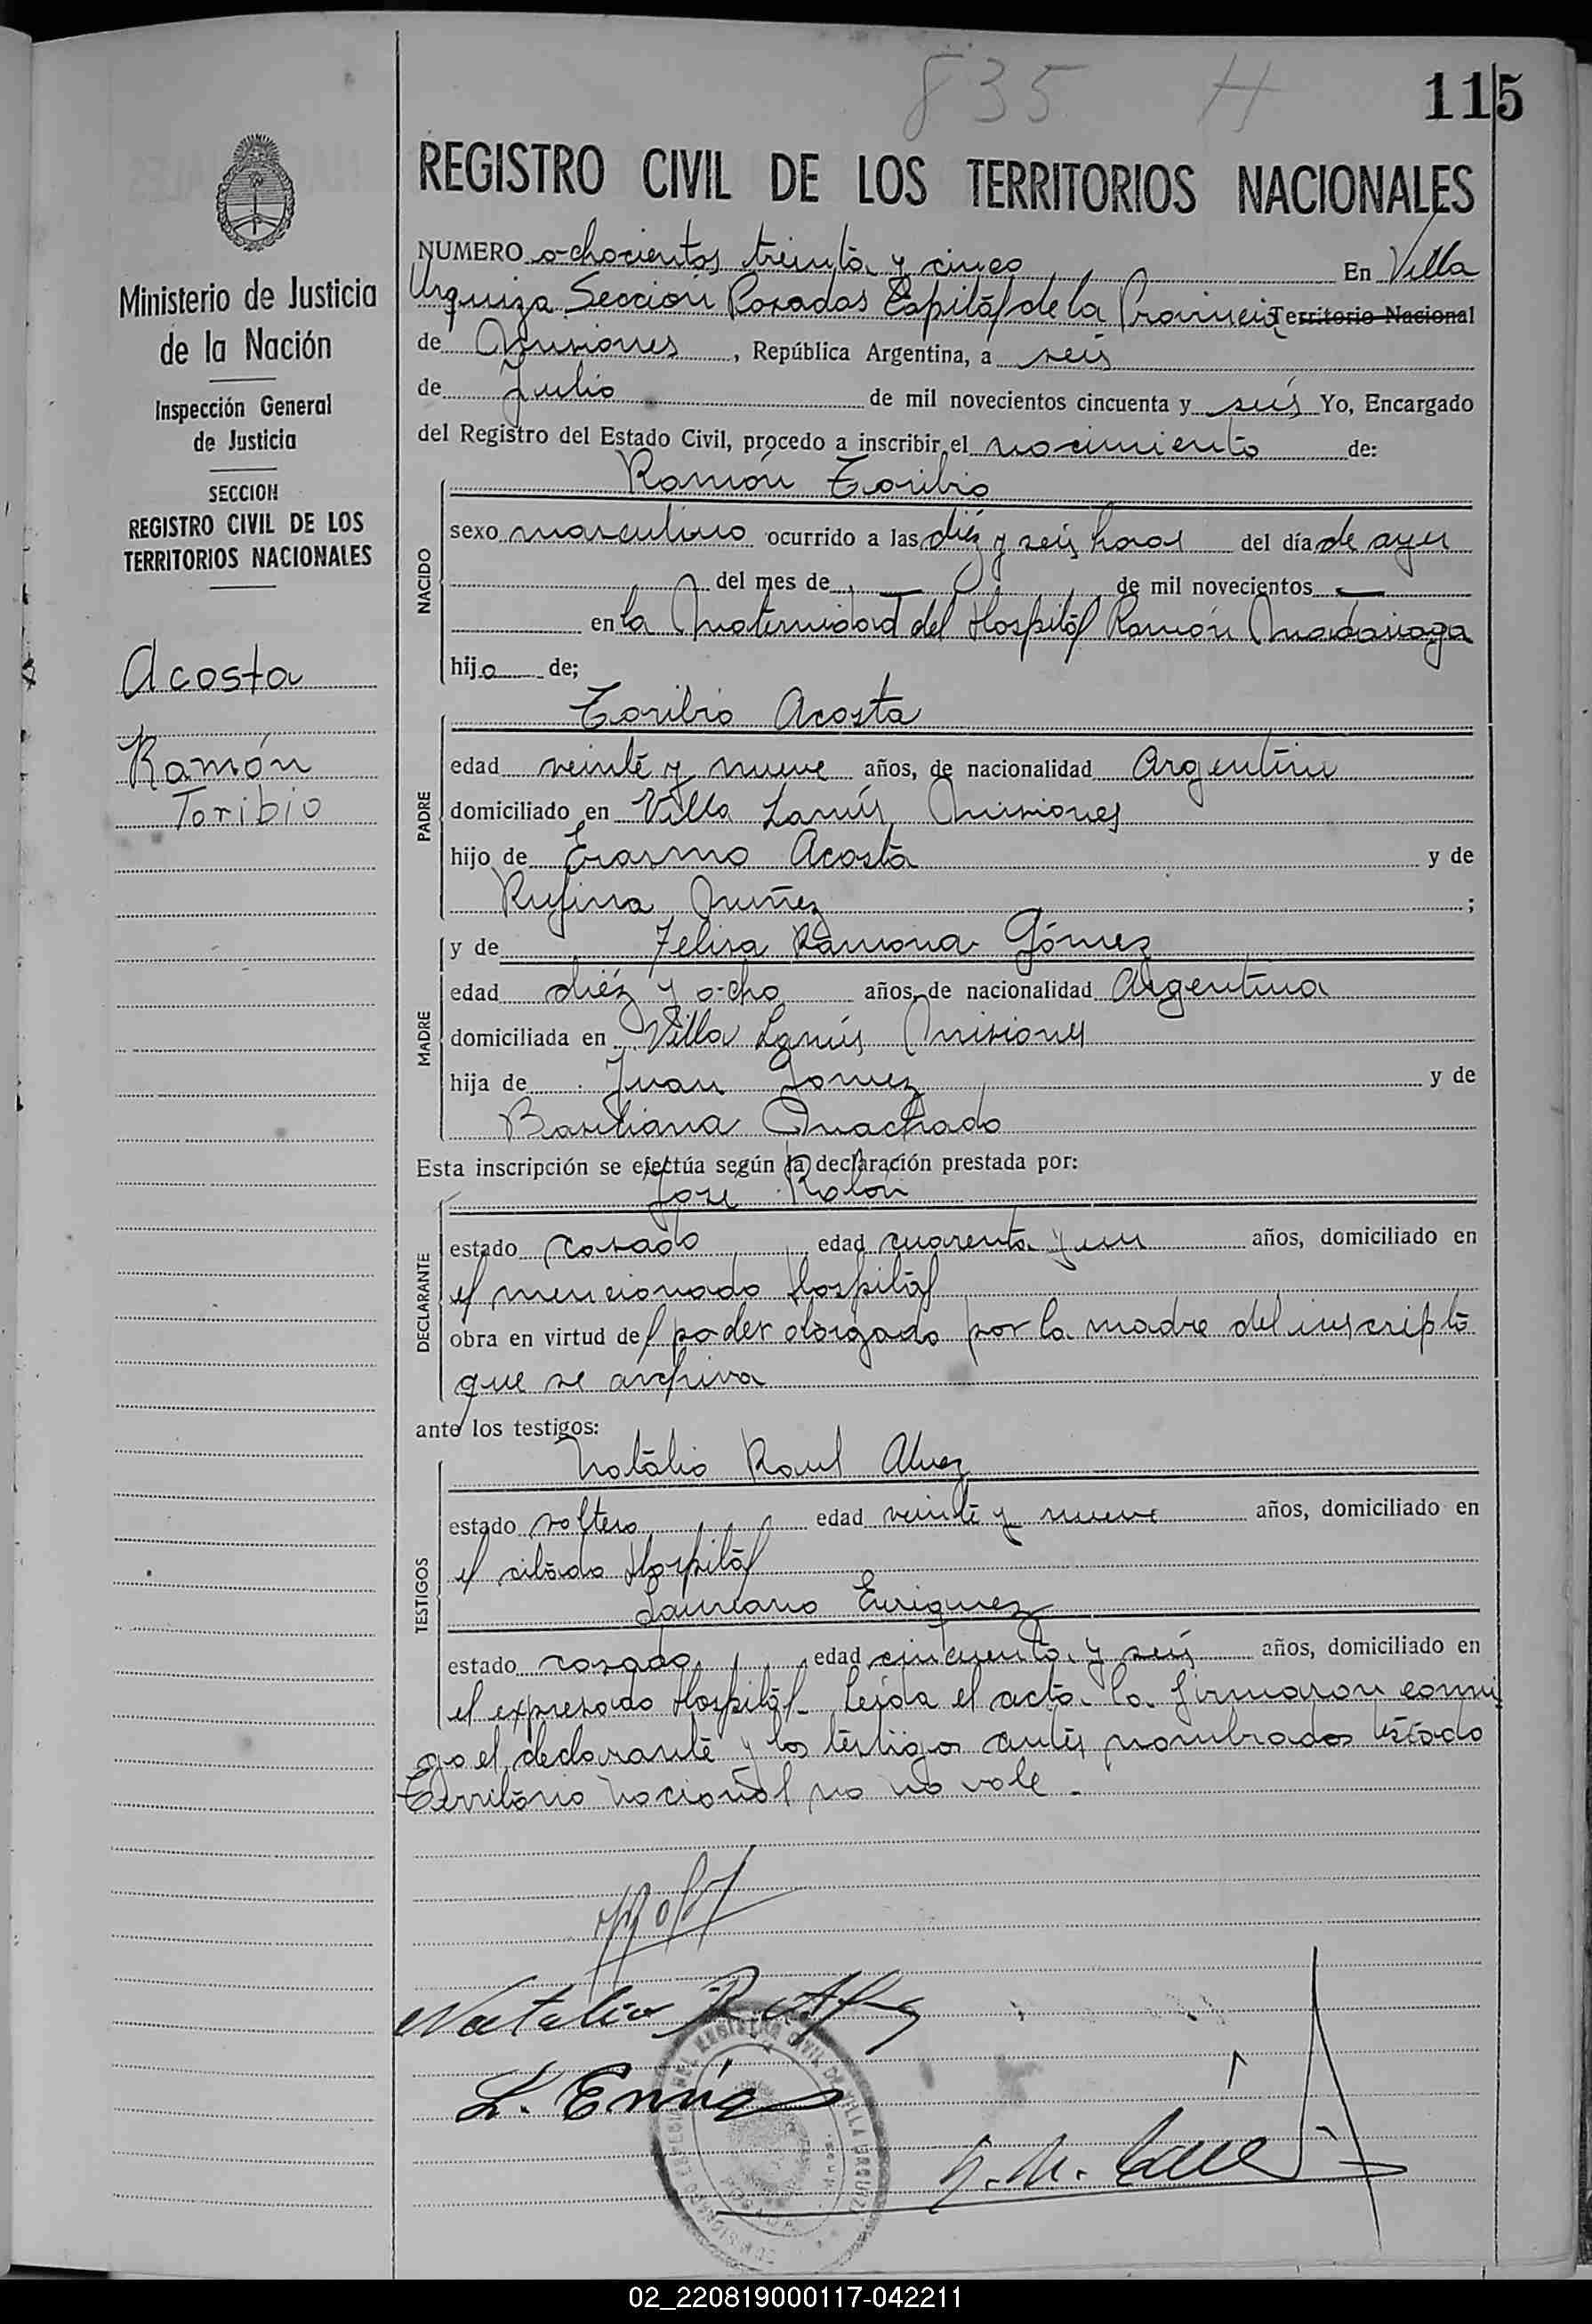 835 H
115
REGISTRO CIVIL DE LOS TERRITORIOS NACIONALES
NUMERO ochocientos treinta y cinco En Villa
Urquiza Sección Posadas Capital de la Provincia Territorio Nacional
de Misiones, República Argentina, a seis
de Julio de mil novecientos cincuenta y seis Yo, Encargado
del Registro del Estado Civil, procedo a inscribir el nacimiento de:
Ministerio de Justicia
de la Nación
Inspección General
de Justicia
SECCION
REGISTRO CIVIL DE LOS
TERRITORIOS NACIONALES
Acosta
Ramón
Toribio
NACIDO
Ramón Toribio
sexo masculino ocurrido a las diéz y seis horas del día de ayer
del mes de de mil novecientos —
en la Maternidad del Hospital Ramón Madariaga
hijo de;
PADRE
Toribio Acosta
edad veinte y nueve años, de nacionalidad Argentino
domiciliado en Villa Lanús Misiones
hijo de Erasmo Acosta y de
Rufina Nuñez ;
y de Felisa Ramona Gómez
MADRE
edad diéz y ocho años, de nacionalidad Argentina
domiciliada en Villa Lanús Misiones
hija de Juan Gomez y de
Basiliana Machado
Esta inscripción se efectúa según la declaración prestada por:
DECLARANTE
Jose Rolón
estado casado edad cuarenta y un años, domiciliado en
el mencionado Hospital
obra en virtud del poder otorgado por la madre del inscripto
que se archiva
ante los testigos:
TESTIGOS
Natalio Raul Alvez
estado soltero edad veinte y nueve años, domiciliado en
el citado Hospital
Laureano Enriquez
estado casado edad cincuenta y seis años, domiciliado en
el expresado Hospital- Leida el acta la firmaron conmi
go el declarante y los testigos antes nombrados testado
Territorio Nacional no vale -
Natalio R. Alvez
L. Enriq
REGISTRO CIVIL DE VILLA URQUIZA
02_220819000117-042211